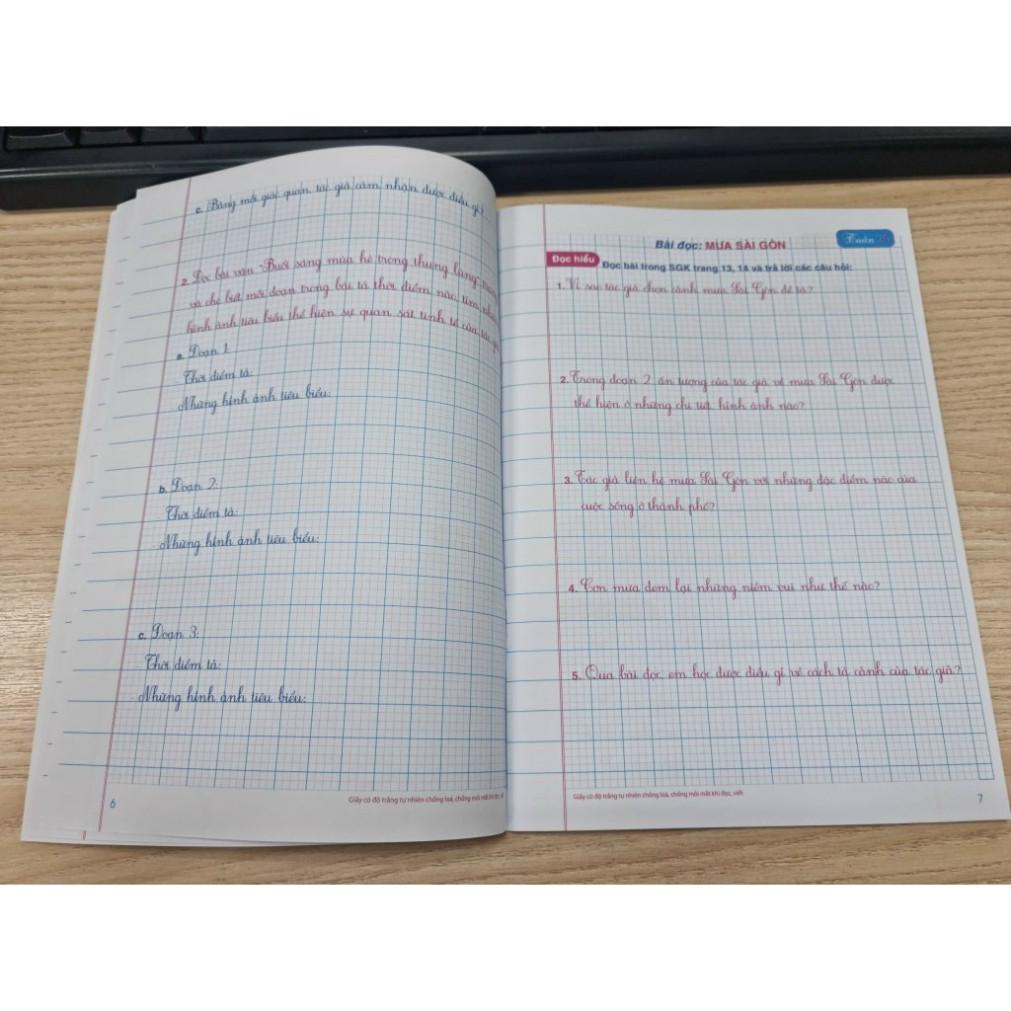 c. Bằng mỗi giác quan, tác giả cảm nhận được điều gì?
2. Đọc bài văn "Buổi sáng mùa hè trong thung lũng"
và cho biết mỗi đoạn trong bài tả thời điểm nào, tìm những
hình ảnh tiêu biểu thể hiện sự quan sát tinh tế của tác giả
a. Đoạn 1:
- Thời điểm tả:
- Những hình ảnh tiêu biểu:
b. Đoạn 2:
- Thời điểm tả:
- Những hình ảnh tiêu biểu:
c. Đoạn 3:
- Thời điểm tả:
- Những hình ảnh tiêu biểu:
6
Giấy có độ trắng tự nhiên chống loá, chống mỏi mắt khi đọc,
Tuần
Bài đọc: MƯA SÀI GÒN
Đọc hiểu Đọc bài trong SGK trang 13, 14 và trả lời các câu hỏi:
1. Vì sao tác giả chọn cảnh mưa Sài Gòn để tả?
2. Trong đoạn 2, ấn tượng của tác giả về mưa Sài Gòn được
thể hiện ở những chi tiết, hình ảnh nào?
3. Tác giả liên hệ mưa Sài Gòn với những đặc điểm nào của
cuộc sống ở thành phố?
4. Cơn mưa đem lại những niềm vui như thế nào?
5. Qua bài đọc, em học được điều gì về cách tả cảnh của tác giả?
Giấy có độ trắng tự nhiên chống loá, chống mỏi mắt khi đọc, viết
7